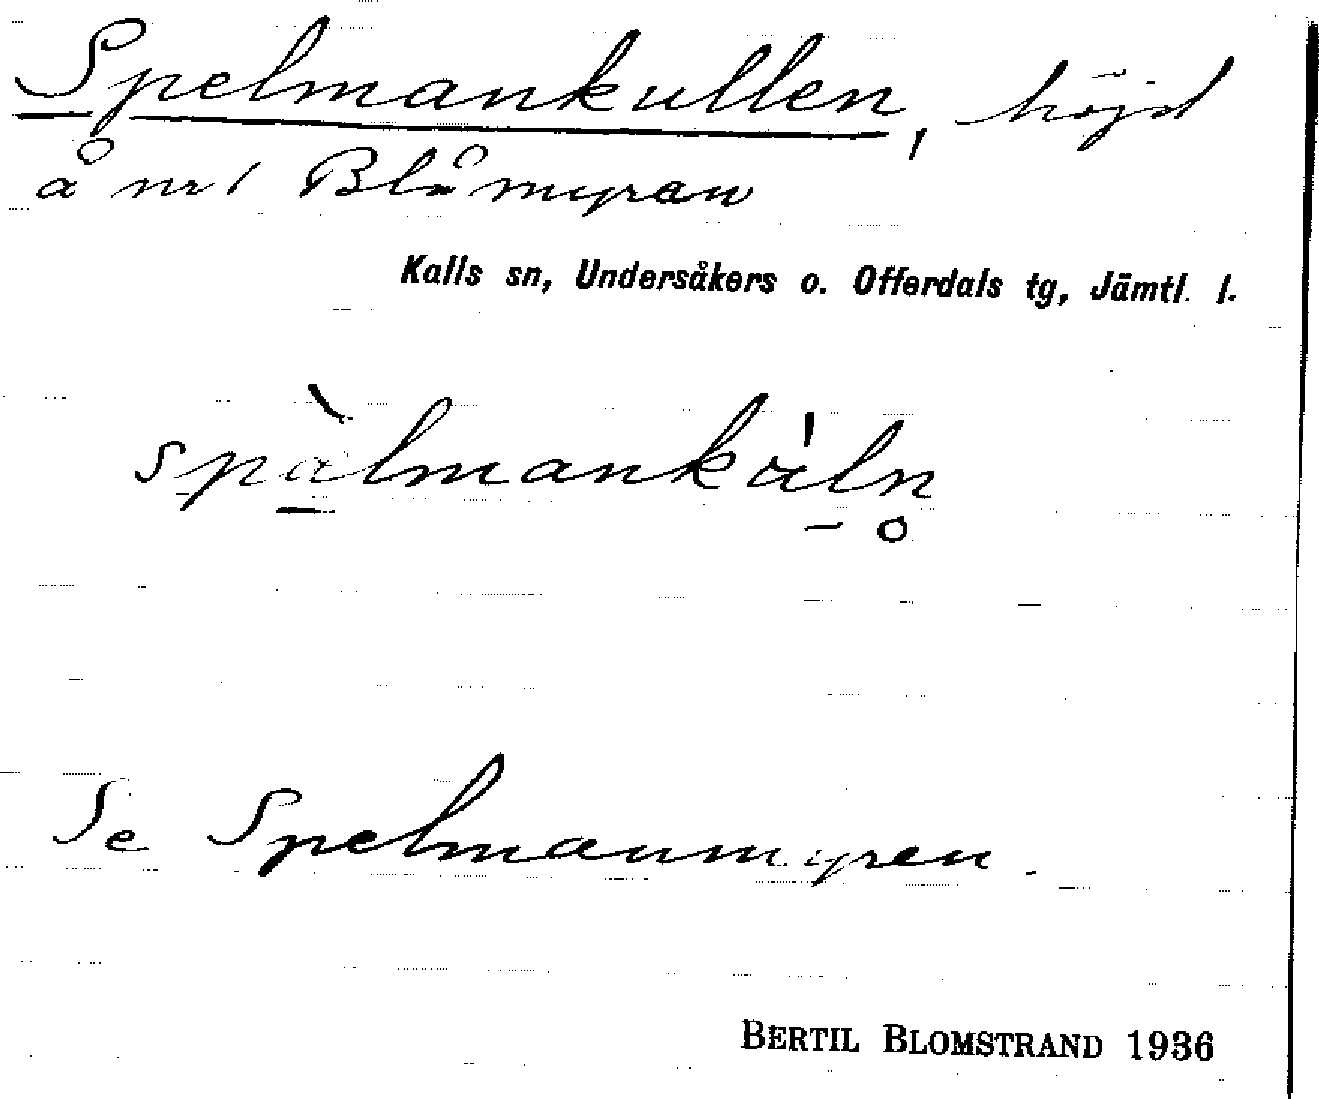 Spelmankullen, höjd
å nr 1 Blåmyran
Kalls sn, Undersåkers o. Offerdals tg, Jämtl. l.
spä̀lmankä̍ln̥
Se Spelmanmyren.
BERTIL BLOMSTRAND 1936